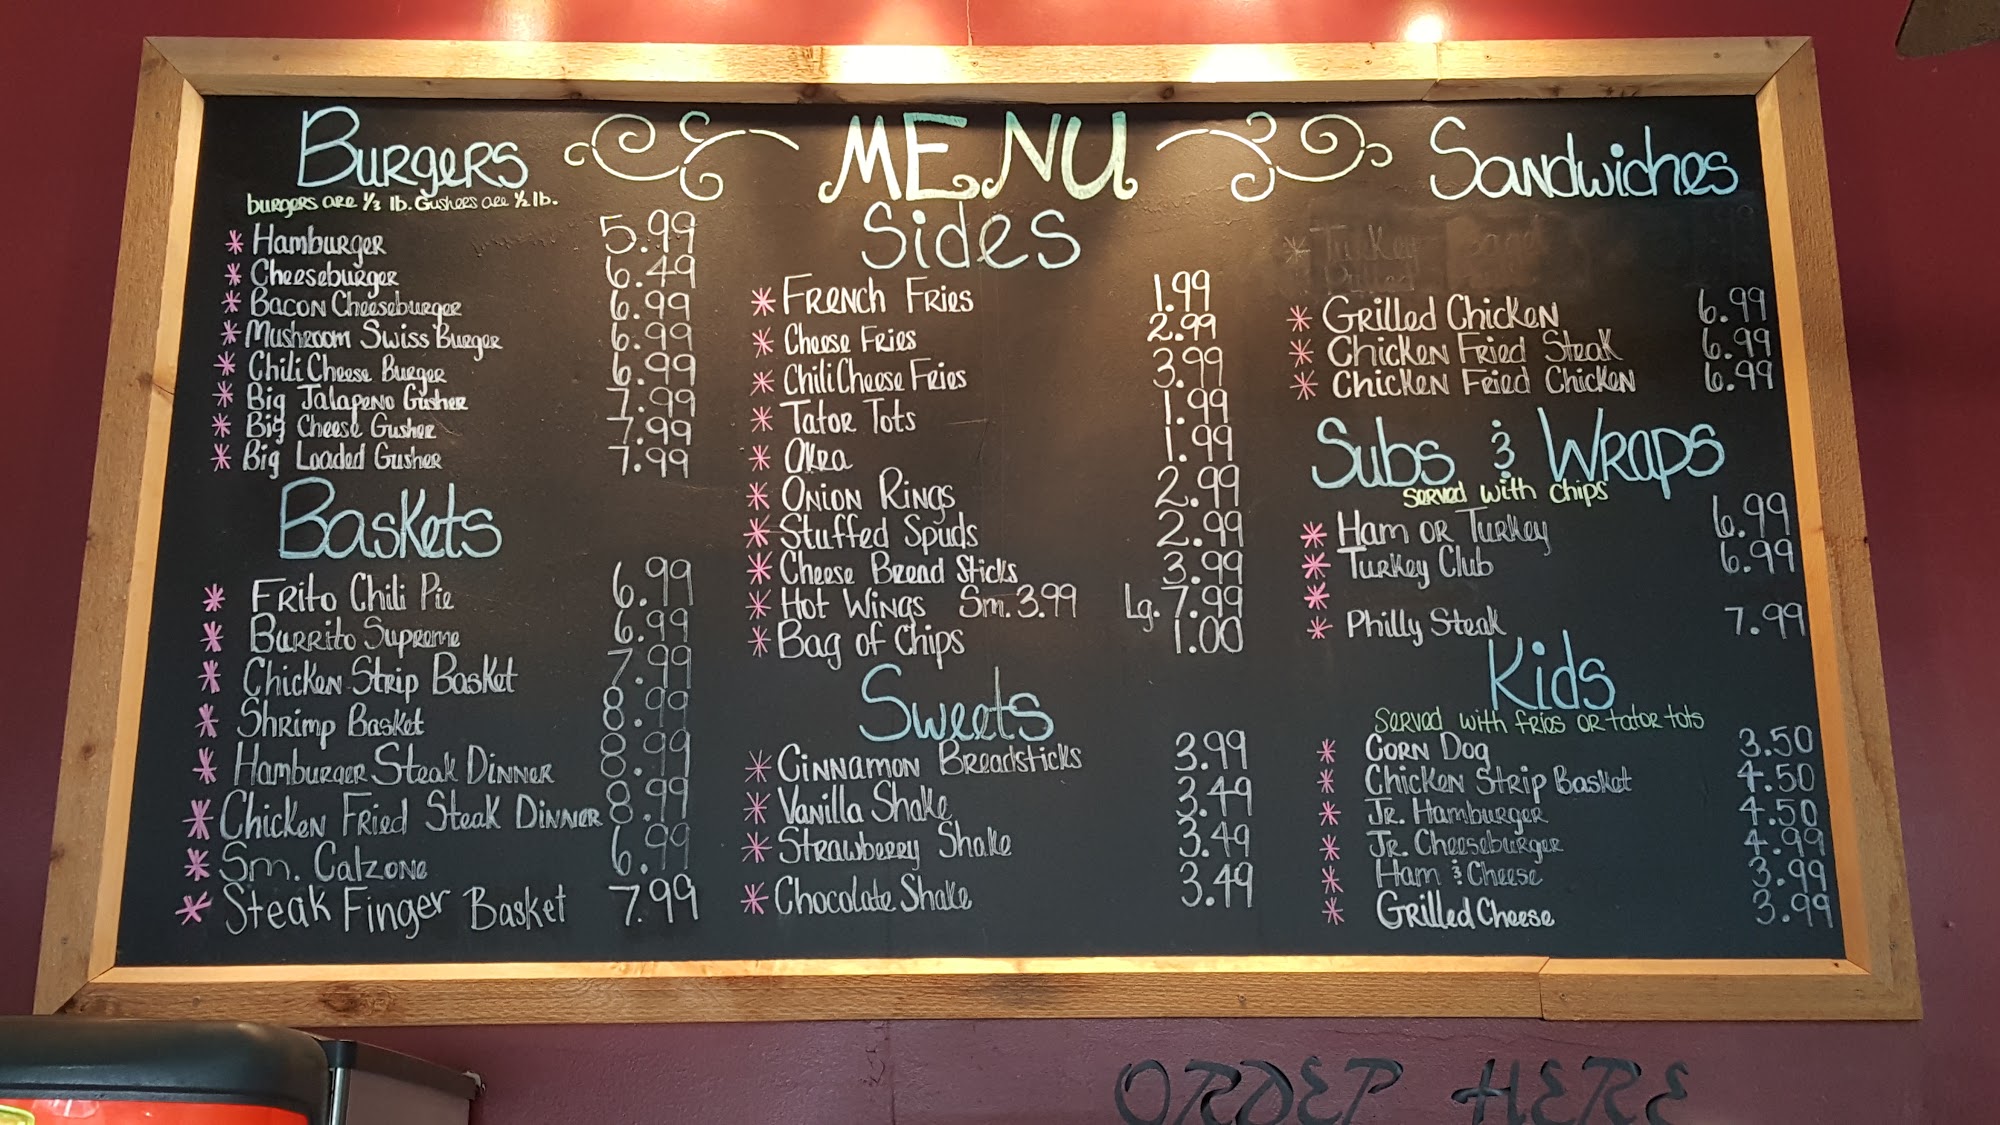 MENU
Burgers
burgers are 1/3 lb. Gushers are 1/2 lb.
* Hamburger 5.99
* Cheeseburger 6.49
* Bacon Cheeseburger 6.99
* Mushroom Swiss Burger 6.99
* Chili Cheese Burger 6.99
* Big Jalapeno Gusher 7.99
* Big Cheese Gusher 7.99
* Big Loaded Gusher 7.99
Baskets
* Frito Chili Pie 6.99
* Burrito Supreme 6.99
* Chicken Strip Basket 7.99
* Shrimp Basket 8.99
* Hamburger Steak Dinner 8.99
* Chicken Fried Steak Dinner 8.99
* Sm. Calzone 6.99
* Steak Finger Basket 7.99
Sides
* French Fries 1.99
* Cheese Fries 2.99
* Chili Cheese Fries 3.99
* Tator Tots 1.99
* Okra 1.99
* Onion Rings 2.99
* Stuffed Spuds 2.99
* Cheese Bread Sticks 3.99
* Hot Wings Sm. 3.99 Lg. 7.99
* Bag of Chips 1.00
Sweets
* Cinnamon Breadsticks 3.99
* Vanilla Shake 3.49
* Strawberry Shake 3.49
* Chocolate Shake 3.49
Sandwiches
* Turkey
* Grilled Chicken 6.99
* Chicken Fried Steak 6.99
* Chicken Fried Chicken 6.99
Subs & Wraps
served with chips
* Ham or Turkey 6.99
* Turkey Club 6.99
*
* Philly Steak 7.99
Kids
Served with fries or tator tots
* Corn Dog 3.50
* Chicken Strip Basket 4.50
* Jr. Hamburger 4.50
* Jr. Cheeseburger 4.99
* Ham & Cheese 3.99
* Grilled Cheese 3.99
ORDER HERE